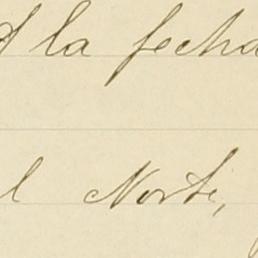 la fecha
l Norte,